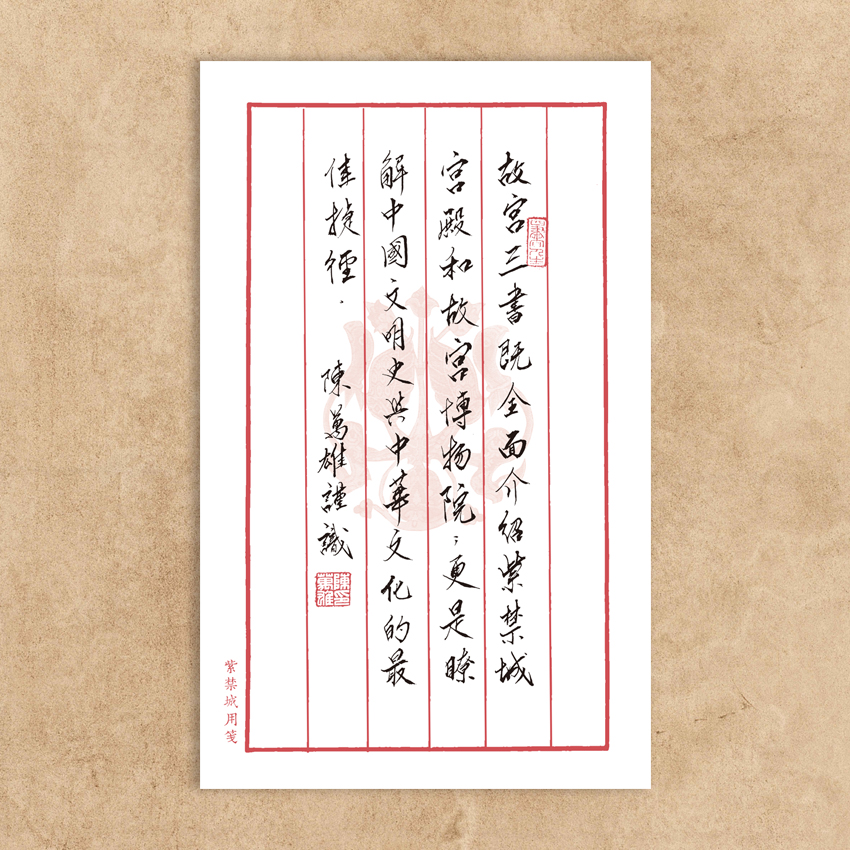 故宮三書既全面介紹紫禁城
宮殿和故宮博物院；更是瞭
解中國文明史與中華文化的最
佳捷徑．
陳萬雄謹識
陳萬雄印
紫禁城用箋